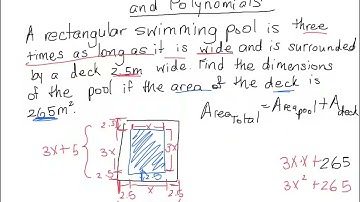 and Polynomials
A rectangular swimming pool is three
times as long as it is wide and is surrounded
by a deck 2.5m wide. Find the dimensions
of the pool if the area of the deck is
265m².
Area Total = Area pool + A deck
2.5
x
3x+5
3x
3x
2.5
2.5
x
2.5
2.5
3x·x+265
3x²+265